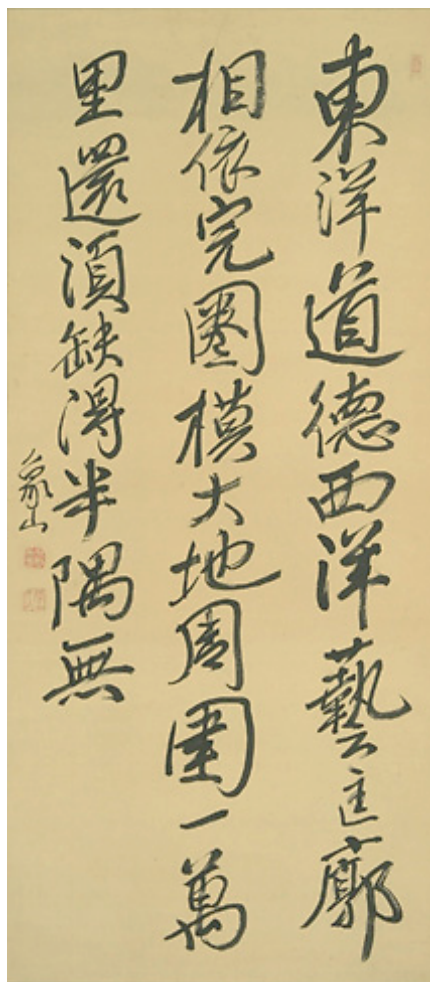 東洋道德西洋藝匡廓
相依完圏模大地周圍一萬
里還須缺得半隅無
象山